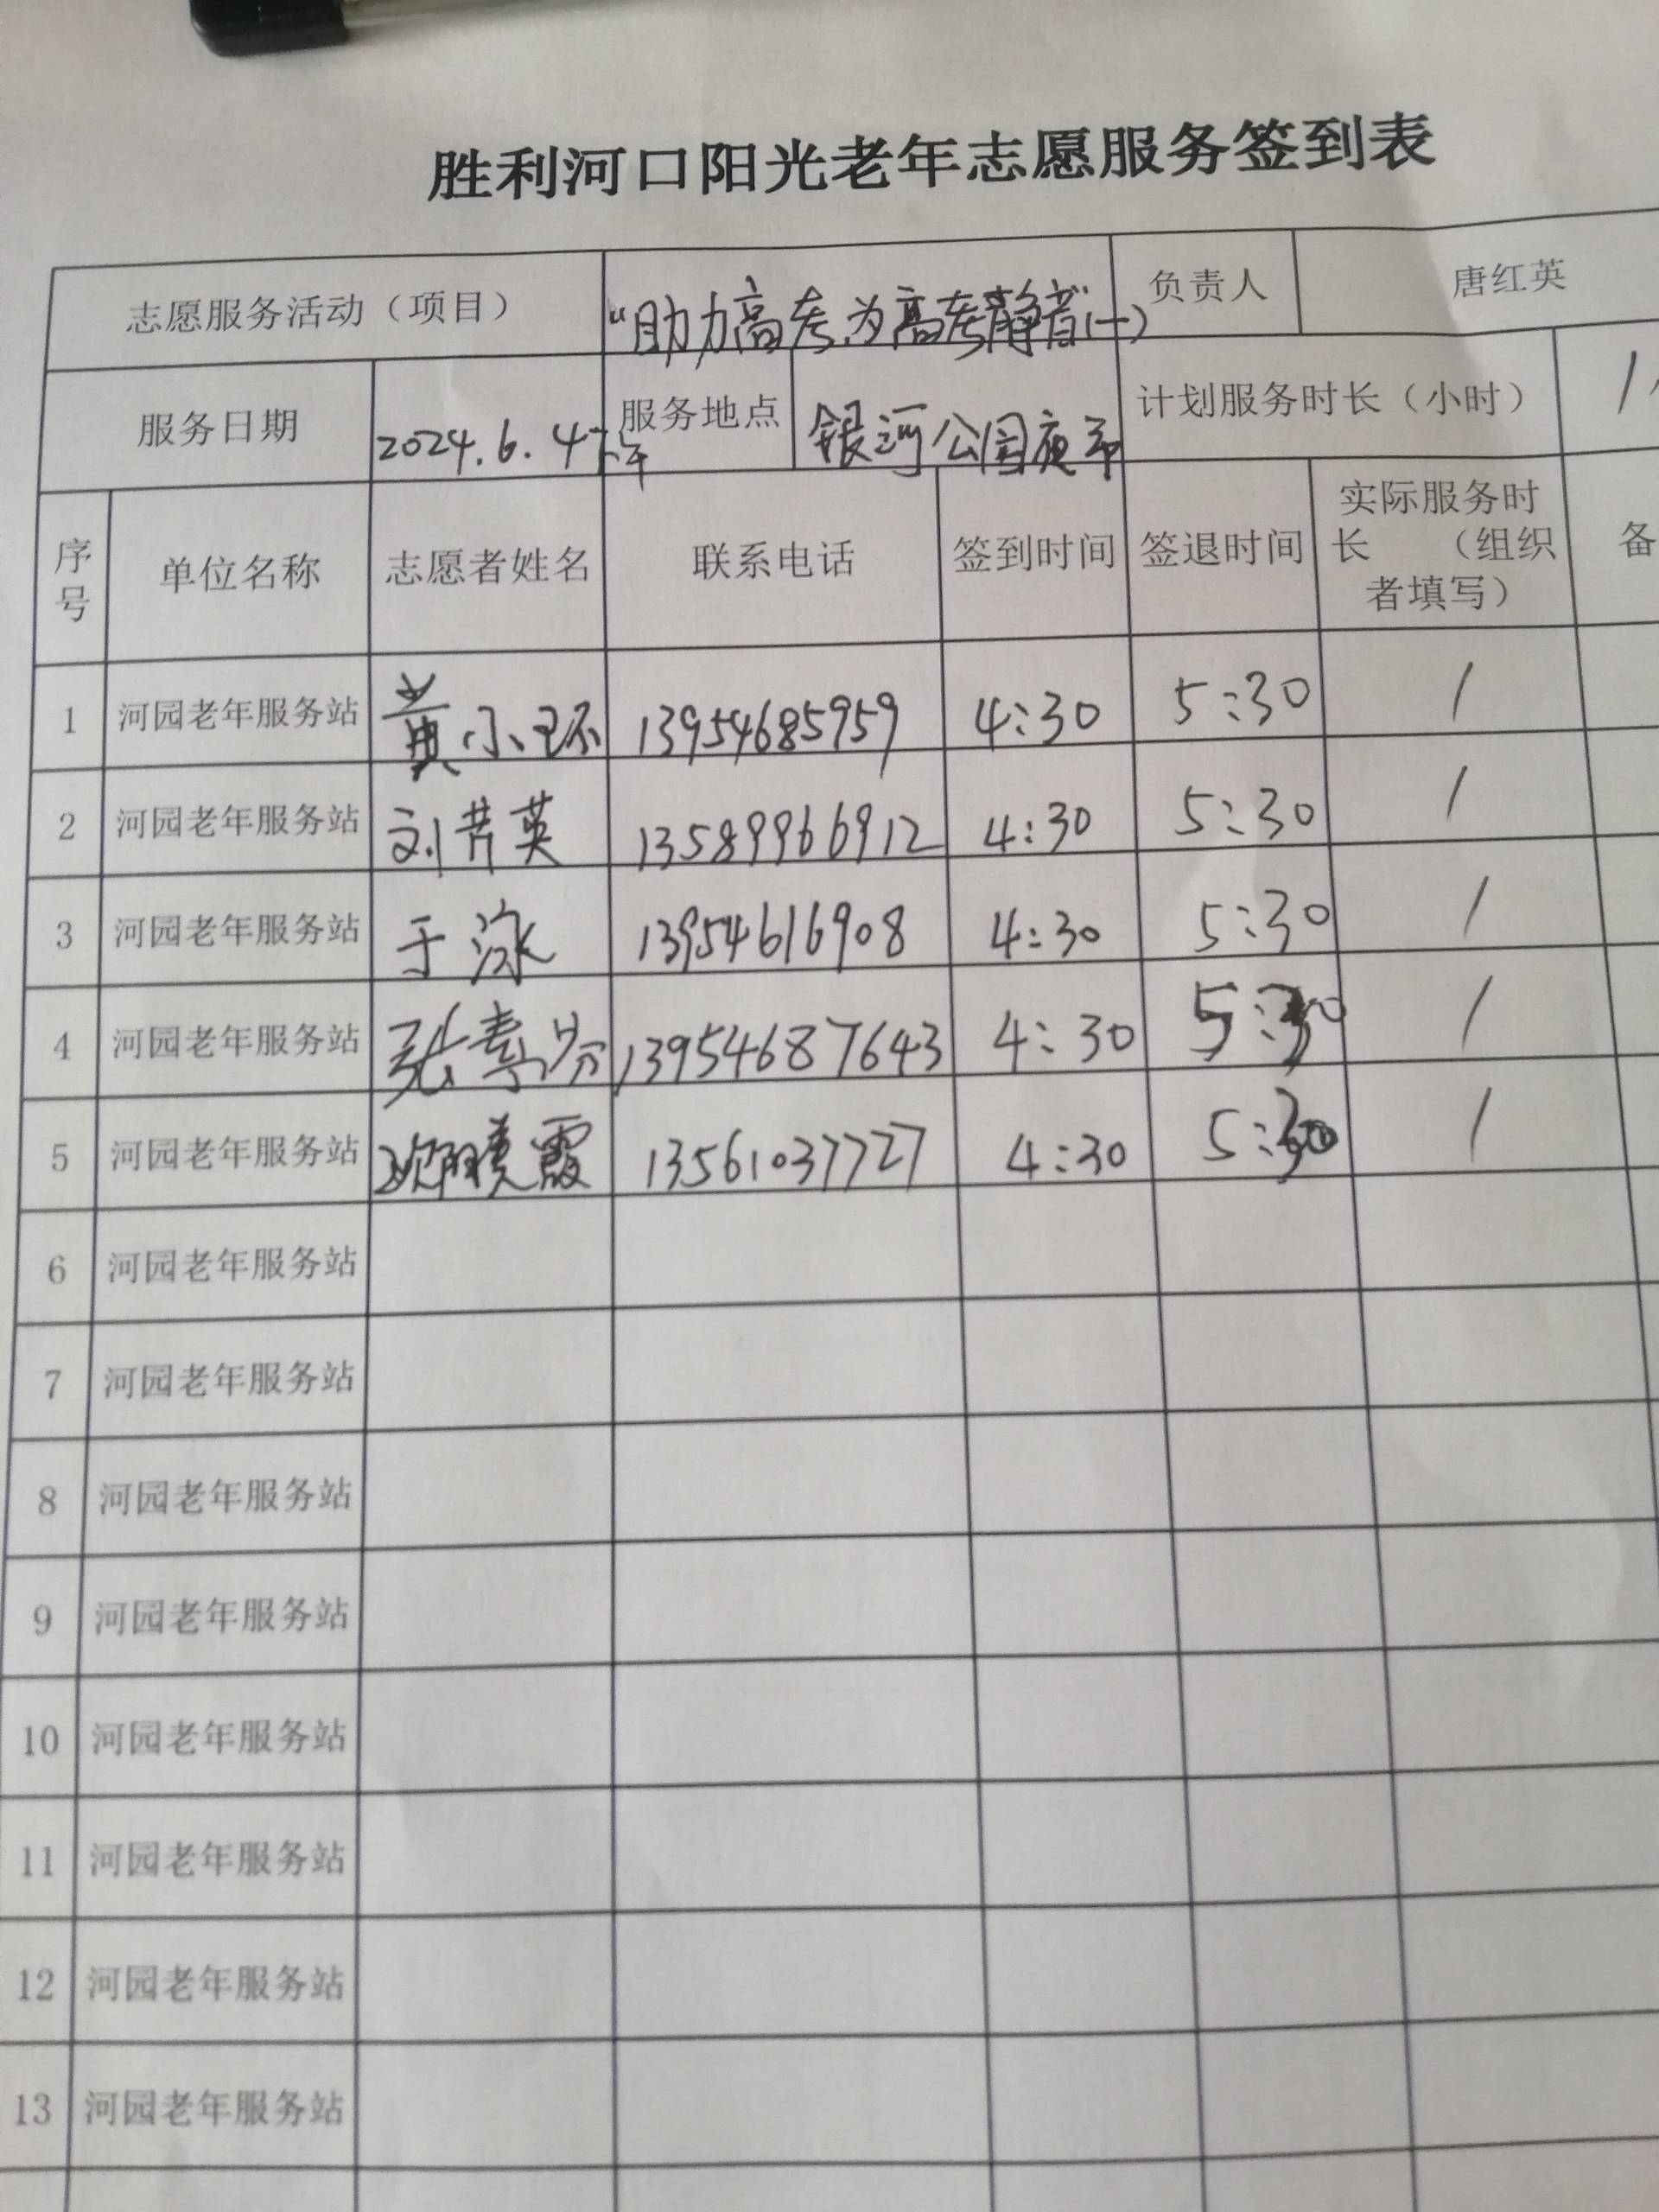 胜利河口阳光老年志愿服务签到表
志愿服务活动（项目） "助力高考,为高考静音"(一) 负责人 唐红英
服务日期 2024.6.4下午 服务地点 银河公园夜市 计划服务时长（小时） 1
序号 单位名称 志愿者姓名 联系电话 签到时间 签退时间 实际服务时长 （组织者填写） 备
1 河园老年服务站 黄小环 13954685959 4:30 5:30 1
2 河园老年服务站 刘菁英 13589966912 4:30 5:30 1
3 河园老年服务站 于泳 13954616908 4:30 5:30 1
4 河园老年服务站 张素芬 13954687643 4:30 5:30 1
5 河园老年服务站 霞 13561037727 4:30 5:30 1
6 河园老年服务站
7 河园老年服务站
8 河园老年服务站
9 河园老年服务站
10 河园老年服务站
11 河园老年服务站
12 河园老年服务站
13 河园老年服务站